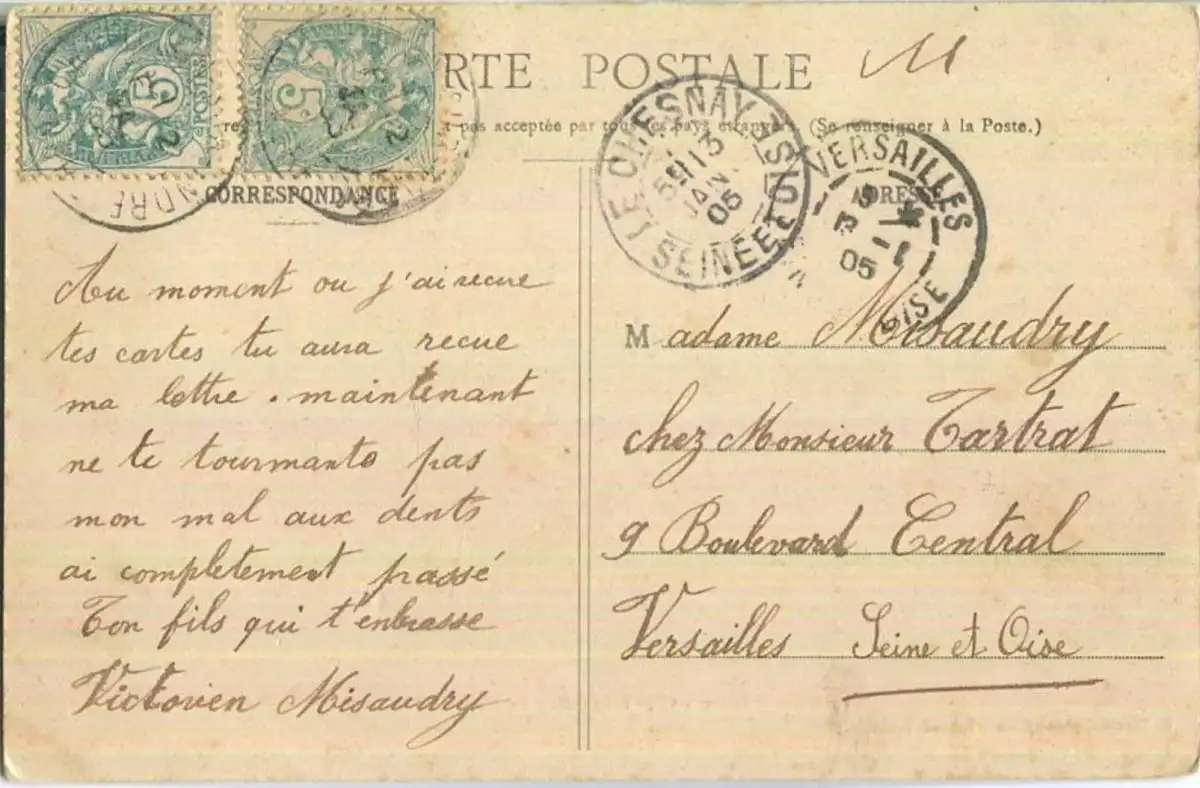 5 POSTES
5
RTE POSTALE
pas acceptée par tous les pays étrangers (Se renseigner à la Poste.)
CORRESPONDANCE
LE CHESNAY SEINE ET OISE
13
JANV.
05
VERSAILLES
OISE
05
ADRESSE
Au moment ou j'ai recue
tes cartes tu aura recue
ma lettre . maintenant
ne te tourmante pas
mon mal aux dents
ai completement passé
Ton fils qui t'enbrasse
Victorien Misaudry
Madame Misaudry
chez Monsieur Tartrat
9 Boulevard Central
Versailles Seine et Oise